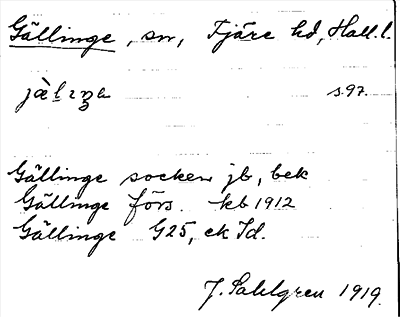 Gällinge, sn, Fjäre hd, Hall. l.
s. 97.
Gällinge socken jb, bek
Gällinge förs. kb 1912
Gällinge G25, ek Id.
J. Sahlgren 1919.